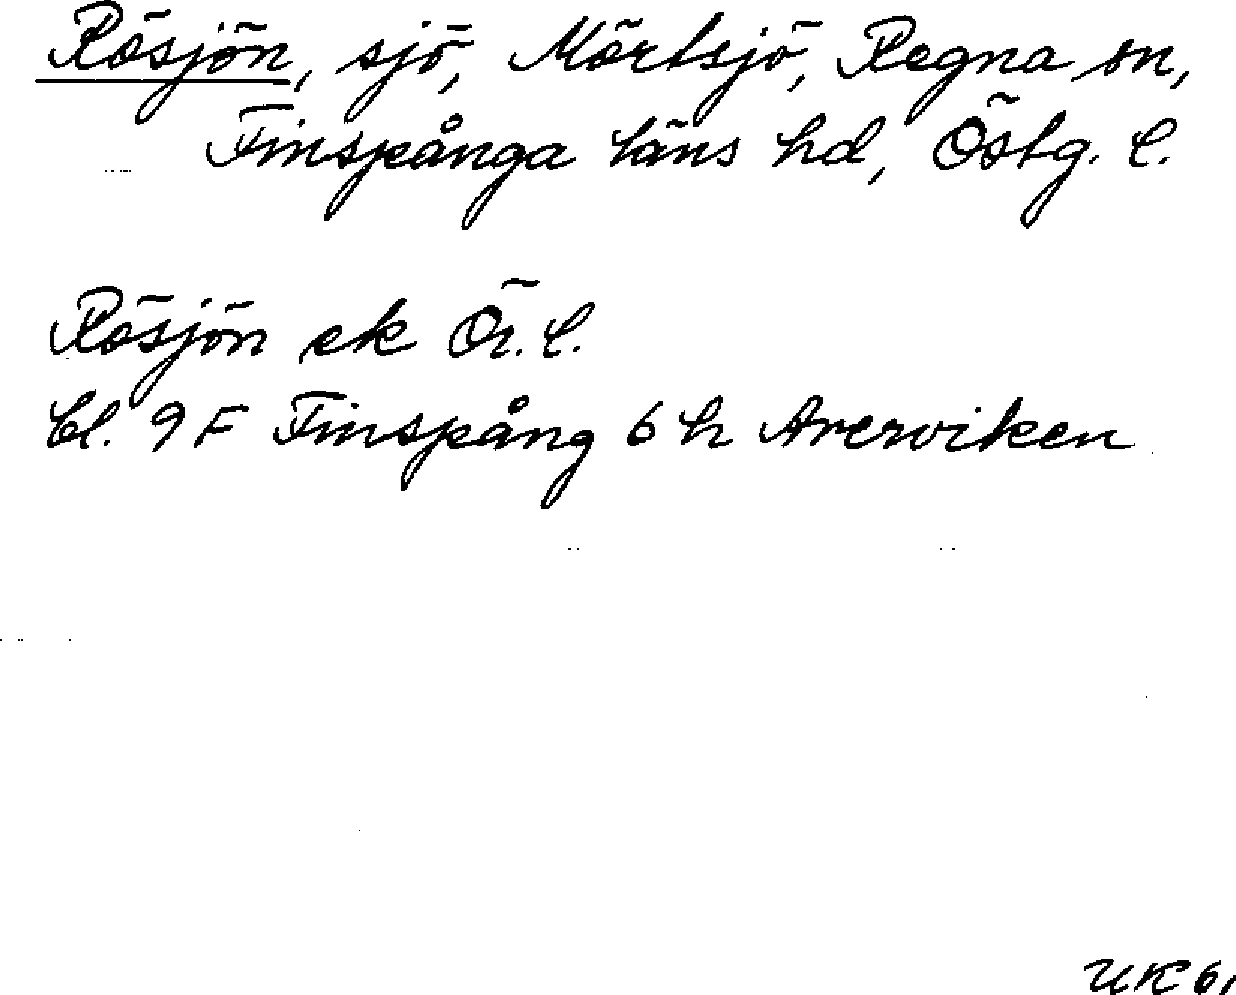 Rösjön, sjö, Mörtsjö, Regna sn,
Finspånga läns hd, Östg. l.
Rösjön ek Ör. l.
bl. 9 F Finspång 6 h Averviken
UK 61